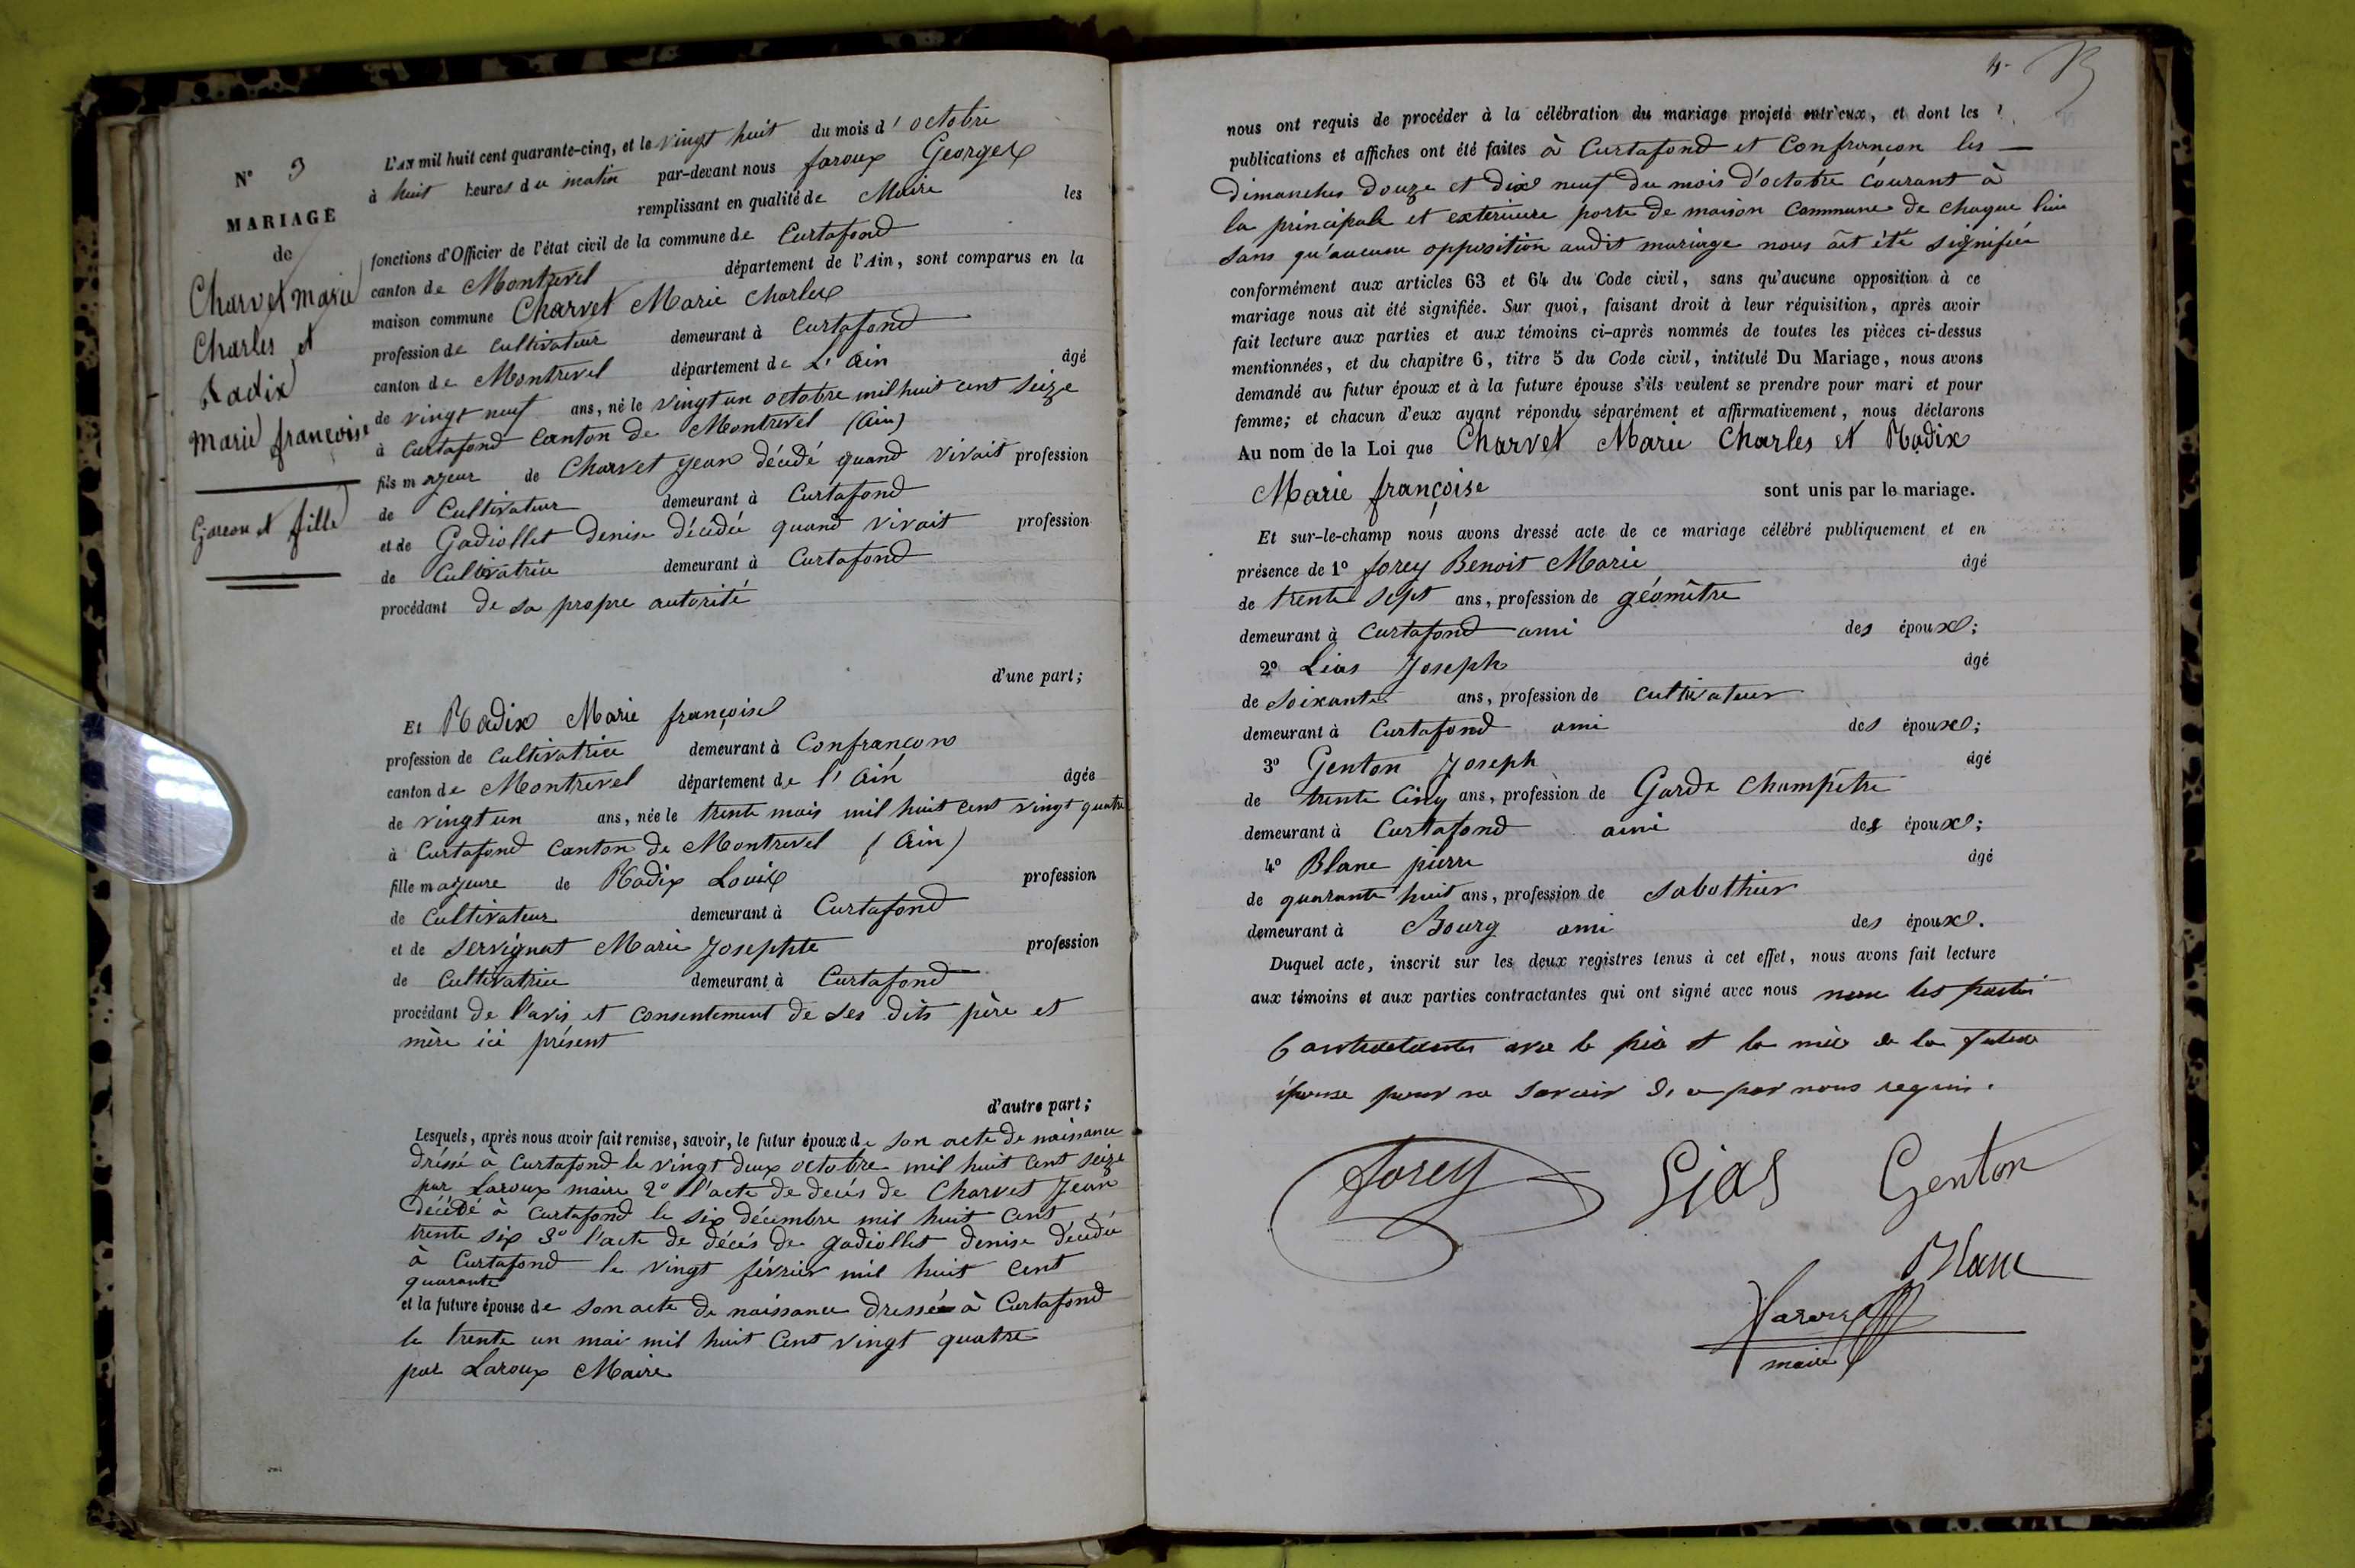 N° 3
MARIAGE
de
Charvet marie
Charles et
Radix
Marie françoise
Garcon et fille
L'an mil huit cent quarante-cinq, et le vingt huit du mois d'octobre
à huit heures du matin par-devant nous Laroux Georges
remplissant en qualité de Maire les
fonctions d'Officier de l'état civil de la commune de Curtafond
canton de Montrevel département de l'Ain, sont comparus en la
maison commune Charvet Marie Charles
profession de Cultivateur demeurant à Curtafond
canton de Montrevel département de L'Ain âgé
de vingt neuf ans, né le vingt un octobre mil huit cent seize
à Curtafond Canton de Montrevel (Ain)
fils majeur de Charvet Jean décédé quand vivait profession
de Cultivateur demeurant à Curtafond
et de Gadiollet denise décédée quand vivait profession
de Cultivatrice demeurant à Curtafond
procédant de sa propre autorité
d'une part;
Et Radix Marie françoise
profession de Cultivatrice demeurant à Confrançon
canton de Montrevel département de l'Ain âgée
de vingt un ans, née le trente mais mil huit cent vingt quatre
à Curtafond Canton de Montrevel (Ain)
fille majeure de Radix Louis profession
de Cultivateur demeurant à Curtafond
et de Servignat Marie Josephte profession
de Cultivatrice demeurant à Curtafond
procédant de l'avis et consentement de ses dits père et
mère ici présent
d'autre part;
Lesquels, après nous avoir fait remise, savoir, le futur époux de son acte de naissance
dréssé à Curtafond le vingt deux octobre mil huit cent seize
par Laroux maire 2° l'acte de decés de Charvet Jean
décédé à Curtafond le six décembre mil huit cent
trente six 3° l'acte de décés de gadiollet denise décédée
à Curtafond le vingt février mil huit cent
quarante
et la future épouse de son acte de naissance dressée à Curtafond
le trente un mai mil huit Cent vingt quatre
par Laroux Maire
nous ont requis de procéder à la célébration du mariage projeté entr'eux, et dont les
publications et affiches ont été faites à Curtafond et Confrançon les
dimanches douze et dix neuf du mois d'octobre Courant à
la principale et exterieure porte de maison Commune de chaque lieu
sans qu'aucune opposition audit mariage nous ait été signifiée
conformément aux articles 63 et 64 du Code civil, sans qu'aucune opposition à ce
mariage nous ait été signifiée. Sur quoi, faisant droit à leur réquisition, après avoir
fait lecture aux parties et aux témoins ci-après nommés de toutes les pièces ci-dessus
mentionnées, et du chapitre 6, titre 5 du Code civil, intitulé Du Mariage, nous avons
demandé au futur époux et à la future épouse s'ils veulent se prendre pour mari et pour
femme; et chacun d'eux ayant répondu séparément et affirmativement, nous déclarons
Au nom de la Loi que Charvet Marie Charles et Radix
Marie françoise sont unis par le mariage.
Et sur-le-champ nous avons dressé acte de ce mariage célébré publiquement et en
présence de 1° Forey Benoit Marie âgé
de trente sept ans, profession de géomètre
demeurant à Curtafond ami des époux;
2° Lias Joseph âgé
de soixante ans, profession de Cultivateur
demeurant à Curtafond ami des époux;
3° Genton Joseph âgé
de trente Cinq ans, profession de Garde Champêtre
demeurant à Curtafond ami des époux;
4° Blanc pierre âgé
de quarante huit ans, profession de sabothier
demeurant à Bourg ami des époux.
Duquel acte, inscrit sur les deux registres tenus à cet effet, nous avons fait lecture
aux témoins et aux parties contractantes qui ont signé avec nous non les parties
Contractantes avec le père et la mère de la future
épouse pour ne savoir de ce par nous requis.
Forey Lias Genton
Blanc
Laroux
maire